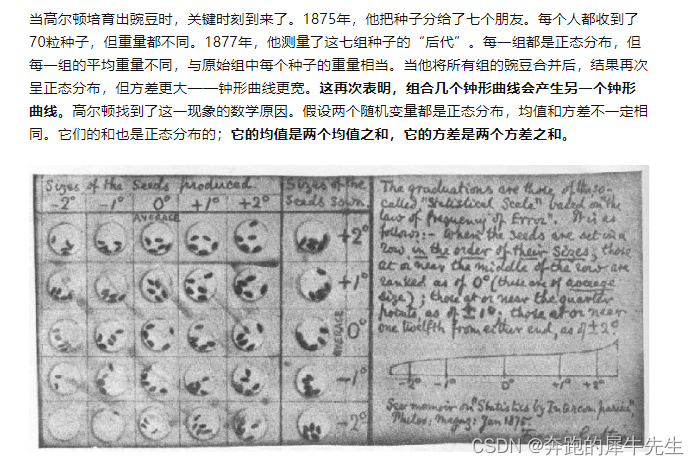 当高尔顿培育出豌豆时，关键时刻到来了。1875年，他把种子分给了七个朋友。每个人都收到了
70粒种子，但重量都不同。1877年，他测量了这七组种子的“后代”。每一组都是正态分布，但
每一组的平均重量不同，与原始组中每个种子的重量相当。当他将所有组的豌豆合并后，结果再次
呈正态分布，但方差更大——钟形曲线更宽。这再次表明，组合几个钟形曲线会产生另一个钟形
曲线。高尔顿找到了这一现象的数学原因。假设两个随机变量都是正态分布，均值和方差不一定相
同。它们的和也是正态分布的；它的均值是两个均值之和，它的方差是两个方差之和。
Sizes of the Seeds produced.
-2° -1° 0° +1° +2°
AVERAGE
Sizes of the
Seeds Sown.
+2°
+1°
AVERAGE 0°
-1°
-2°
The graduations are those of the so-
called "Statistical Scale" based on the
law of Frequency of Error". It is as
follows:- When the seeds are set in a
row in the order of their sizes, those
at or near the middle of the row are
ranked as of 0° (these are of average
size); those at or near the quarter
points, as of ±1°; those at or near
one twelfth from either end, as of ±2°
-2° -1° 0° +1° +2°
See memoir on "Statistics by Intercomparison",
Philos: Magaz: Jan 1875.
CSDN @奔跑的犀牛先生